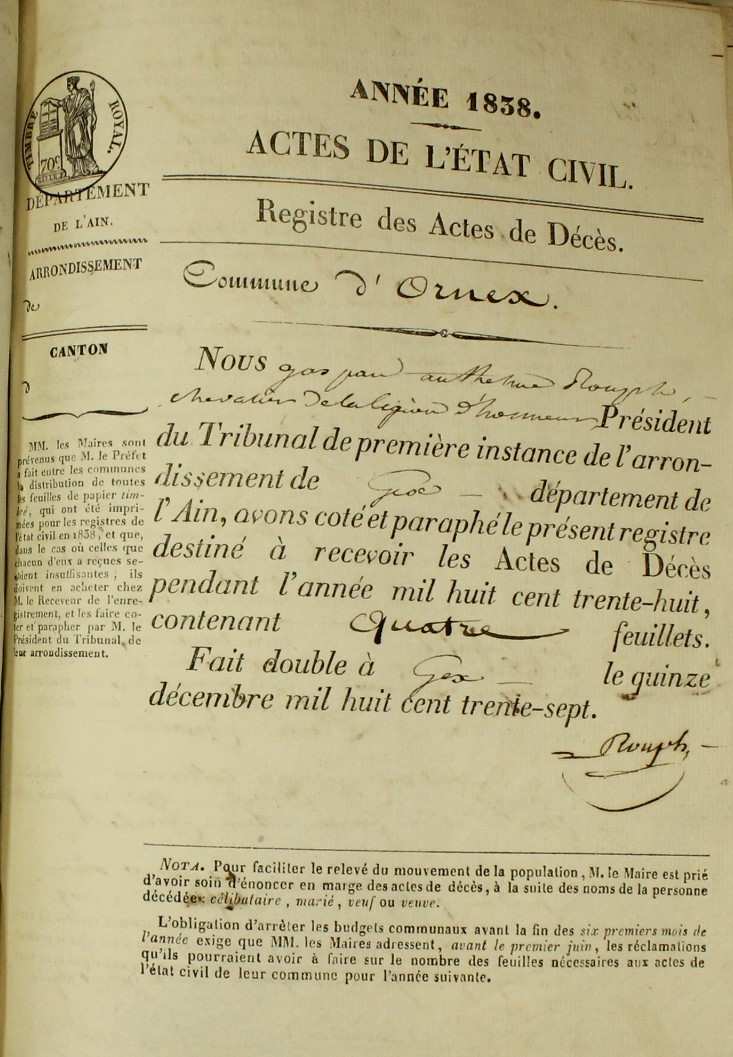 ANNÉE 1838.
ACTES DE L'ÉTAT CIVIL.
Registre des Actes de Décès.
Commune d'Ornex.
TIMBRE ROYAL.
70c
DÉPARTEMENT
DE L'AIN.
ARRONDISSEMENT
de
CANTON
d
MM. les Maires sont
prévenus que M. le Préfet
a fait entre les communes
la distribution de toutes
les feuilles de papier tim-
bré, qui ont été impri-
mées pour les registres de
l'état civil en 1838, et que,
dans le cas où celles que
chacun d'eux a reçues se-
raient insuffisantes, ils
doivent en acheter chez
M. le Receveur de l'enre-
gistrement, et les faire co-
ter et parapher par M. le
Président du Tribunal de
leur arrondissement.
NOUS gaspard anthelme Rouph,
chevalier de la légion d'honneur Président
du Tribunal de première instance de l'arron-
dissement de Gex département de
l'Ain, avons coté et paraphé le présent registre
destiné à recevoir les Actes de Décès
pendant l'année mil huit cent trente-huit,
contenant Quatre feuillets.
Fait double à Gex le quinze
décembre mil huit cent trente-sept.
Rouph
NOTA. Pour faciliter le relevé du mouvement de la population, M. le Maire est prié
d'avoir soin d'énoncer en marge des actes de décès, à la suite des noms de la personne
décédée, célibataire, marié, veuf ou veuve.
L'obligation d'arrêter les budgets communaux avant la fin des six premiers mois de
l'année exige que MM. les Maires adressent, avant le premier juin, les réclamations
qu'ils pourraient avoir à faire sur le nombre des feuilles nécessaires aux actes de
l'état civil de leur commune pour l'année suivante.